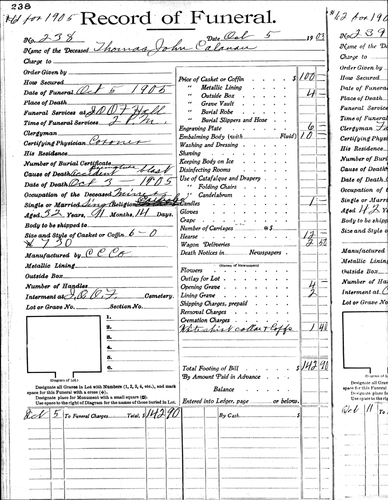 238
#61 for 1905
Record of Funeral.
No. 238 Date Oct 5 1903
Name of the Deceased Thomas John
Charge to
Order Given by
How Secured
Date of Funeral Oct 5 1905
Place of Death
Funeral Services at I.O.O.F Hall
Time of Funeral Services 2 P.M.
Clergyman
Certifying Physician Coroner
His Residence
Number of Burial Certificate
Cause of Death accident blast
Date of Death Oct 3 1905
Occupation of the Deceased Miner
Single or Married Sing Religion
Aged 32 Years, 9 Months 14 Days.
Body to be shipped to
Size and Style of Casket or Coffin 6-0
# 730
Manufactured by C C Co
Metallic Lining
Outside Box
Number of Handles
Interment at I.O.O.F Cemetery.
Lot or Grave No. Section No.
1.
2.
3.
4.
5.
6.
7.
8.
(Diagram of Lot.)
Designate all Graves in Lot with Numbers (1, 2, 3, 4, etc.), and mark
space for this Funeral with a cross
Designate place for Monument with a small square
Use space to right of Diagram for the names of those buried in Lot.
Price of Casket or Coffin $ 100
" Metallic Lining
" Outside Box 4
" Grave Vault
" Burial Robe
" Burial Slippers and Hose
Engraving Plate 6
Embalming Body (with Fluid) 10
Washing and Dressing
Shaving
Keeping Body on Ice
Disinfecting Rooms
Use of Catafalque and Drapery
" Folding Chairs
" Candelabrum
Candles 1
Gloves
Crape
Number of Carriages @ $
Hearse 12
Wagon Deliveries 2 50
Death Notices in Newspapers
(Names of Newspapers)
Flowers
Outlay for Lot
Opening Grave 4
Lining Grave 2
Shipping Charges, prepaid
Removal Charges
Cremation Charges
White shirt collar & Cuffs 1 40
Total Footing of Bill $ 142 90
By Amount Paid in Advance
Balance
Entered into Ledger, page or below.
Oct 5 To Funeral Charges Total, $ 142 90 By Cash $
#62 for 190
No. 239
Name of the
Charge to
Order Given
How Secured
Date of
Place of Death
Funeral
Time of
Clergyman
Certifying
His Residence
Number of
Cause of
Date of Death
Occupation
Single or
Aged 42
Body to be
Size and
Manufactured
Metallic
Outside Box
Number of
Interment at
Lot or Grave
Oct 11